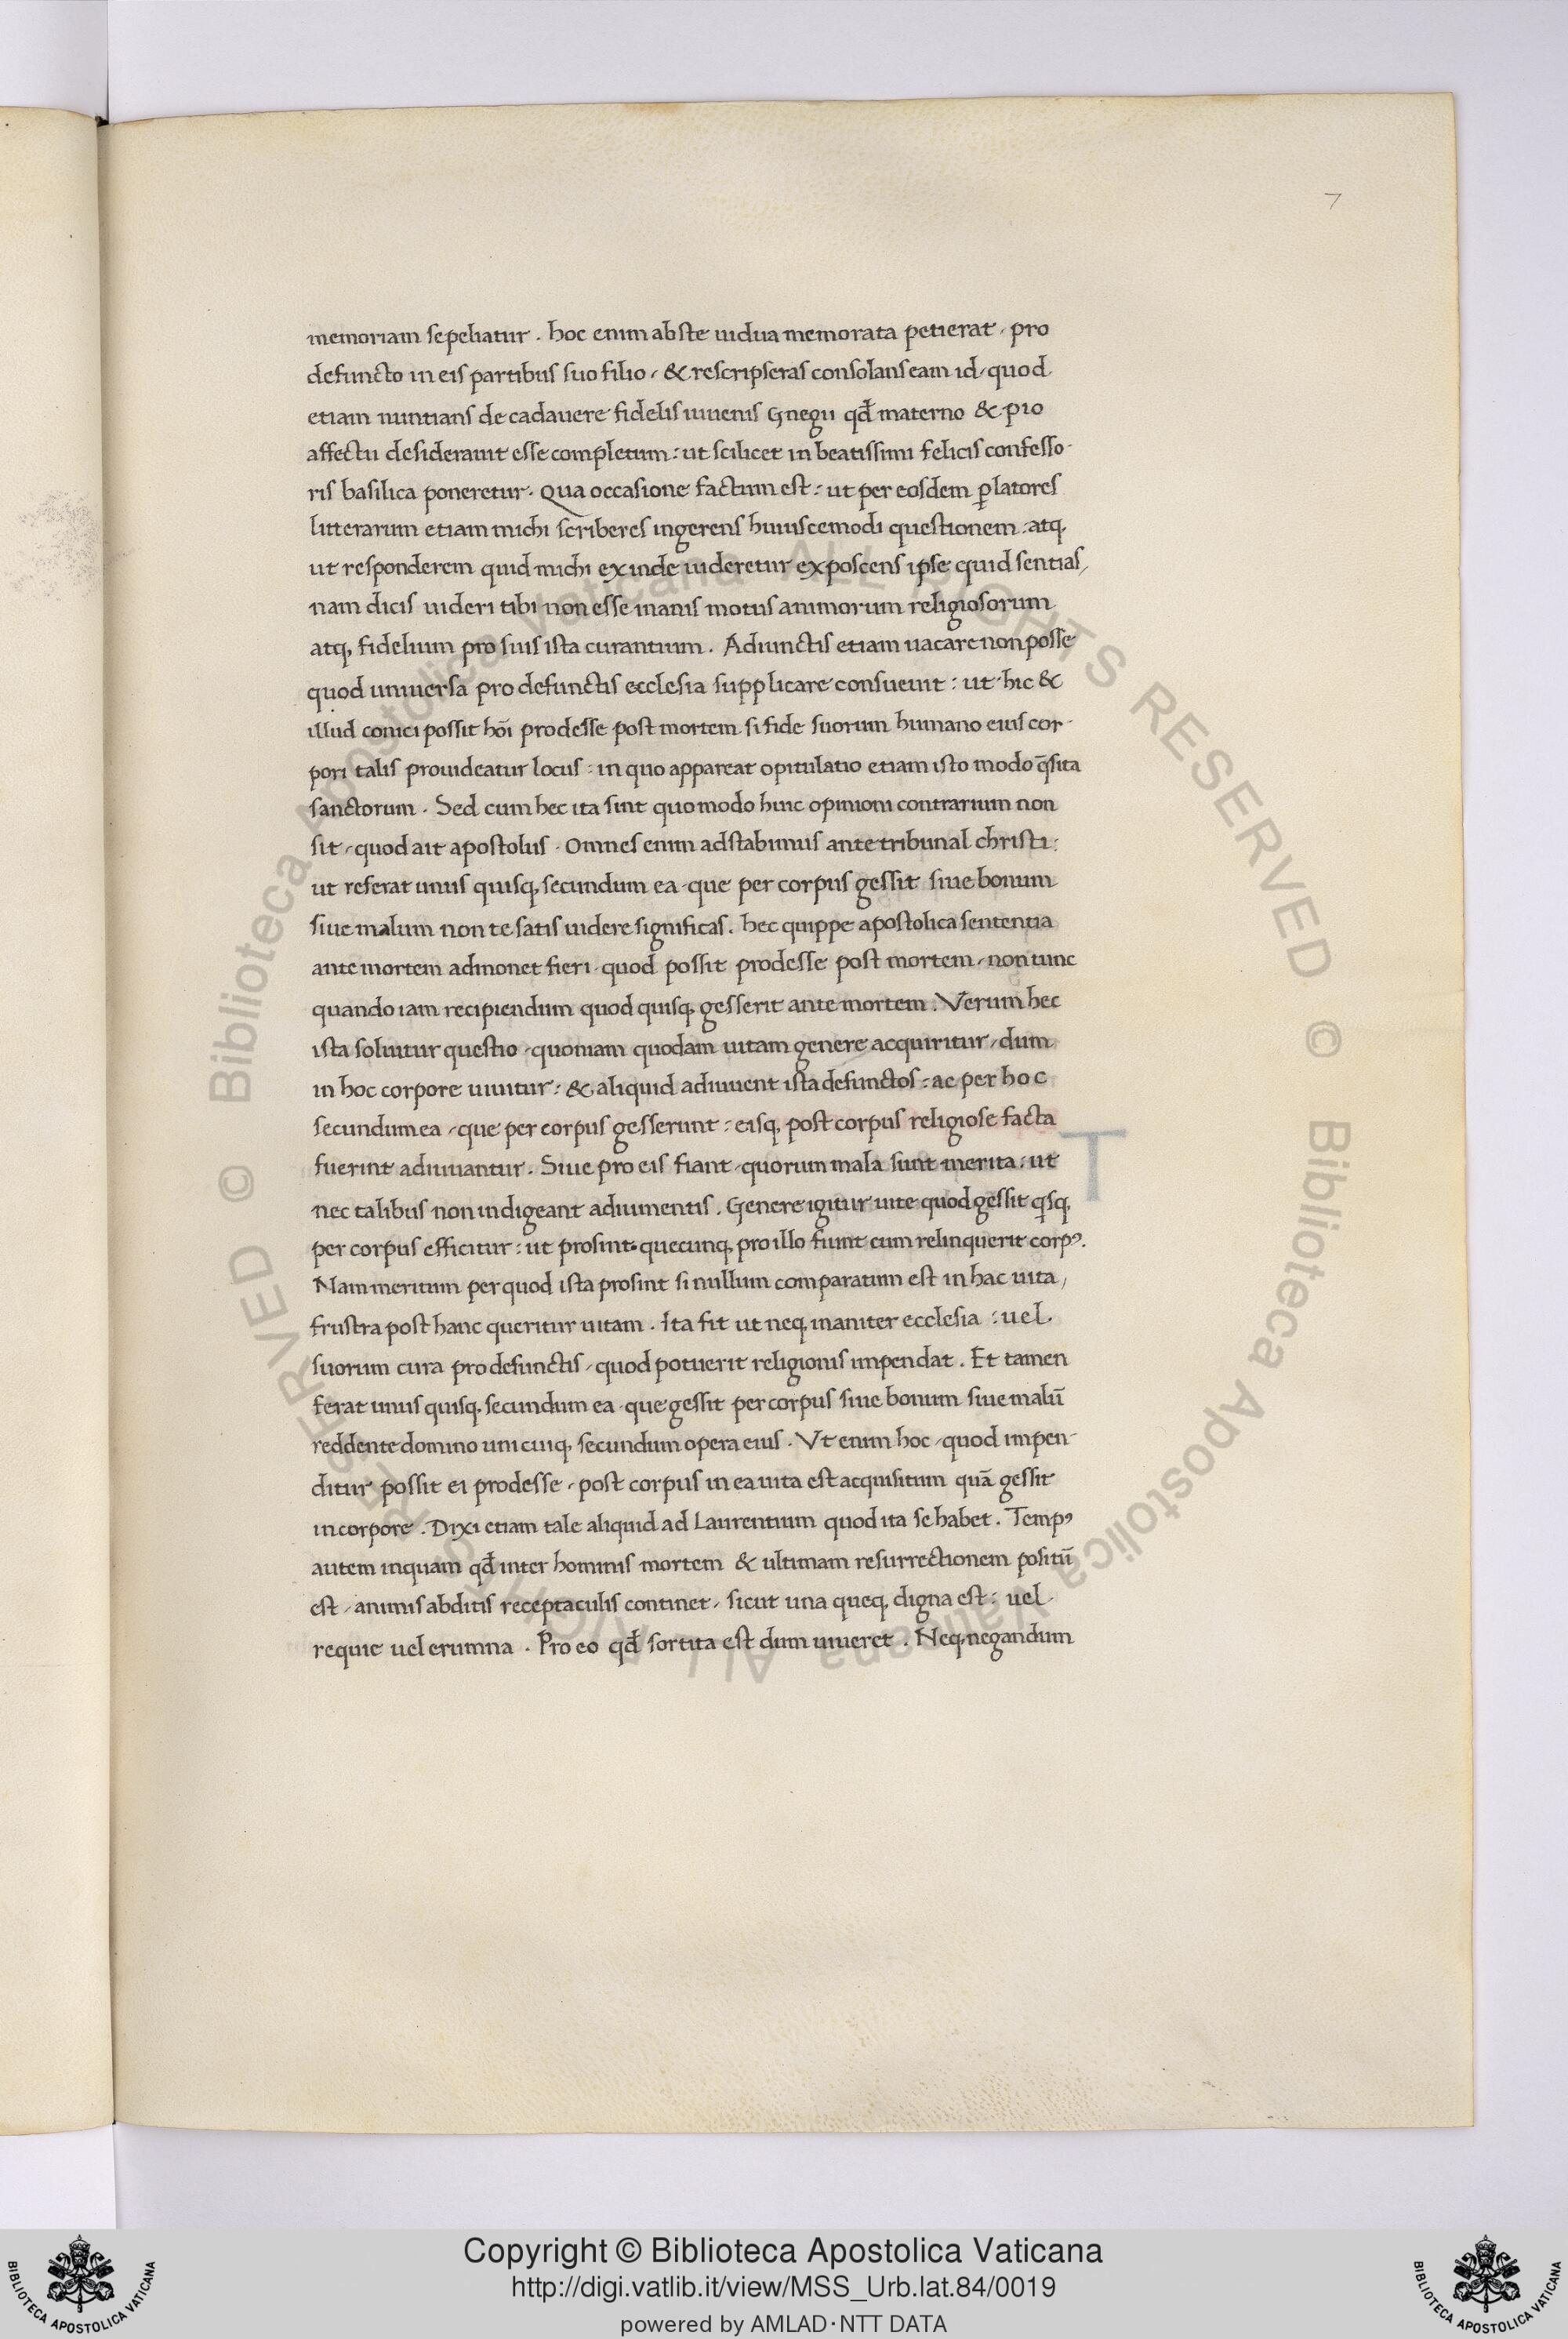 7
memoriam sepeliatur . hoc enim abste uidua memorata petierat, pro
defuncto in eis partibus suo filio, & rescripseras consolans eam id, quod
etiam nuntians de cadauere fidelis iuuenis Gnegii qđ materno & pio
affectu desiderauit esse completum : ut scilicet in beatissimi felicis confesso-
ris basilica poneretur. Qua occasione factum est : ut per eosdem ꝑlatores
litterarum etiam michi scriberes ingerens huiuscemodi questionem : atq,
ut responderem quid michi exinde uideretur exposcens ipse quid sentias,
nam dicis uideri tibi non esse inanis motus animorum religiosorum
atq, fidelium pro suis ista curantium . Adiunctis etiam uacare non posse
quod uniuersa pro defunctis ecclesia supplicare consueuit : ut hic &
illud conici possit hōi prodesse post mortem si fide suorum humano eius cor-
pori talis prouideatur locus : in quo appareat opitulatio etiam isto modo q̄sita
sanctorum . Sed cum hec ita sint quomodo huic opinioni contrarium non
sit, quod ait apostolus . Omnes enim adstabimus ante tribunal christi :
ut referat unus quisq, secundum ea que per corpus gessit siue bonum
siue malum non te satis uidere significas. hec quippe apostolica sententia
ante mortem admonet fieri, quod possit prodesse post mortem, non tunc
quando iam recipiendum quod quisq, gesserit ante mortem . Verum hec
ista soluitur questio, quoniam quodam uitam genere acquiritur, dum
in hoc corpore uiuitur : & aliquid adiuuent ista defunctos : ac per hoc
secundum ea, que per corpus gesserunt : eisq, post corpus religiose facta
fuerint adiuuantur . Siue pro eis fiant, quorum mala sunt merita : ut
nec talibus non indigeant adiumentis . Genere igitur uite quod gessit qsq,
per corpus efficitur : ut prosint quecunq, pro illo fiunt cum relinquerit corpꝰ.
Nam meritum per quod ista prosint si nullum comparatum est in hac uita,
frustra post hanc queritur uitam . Ita fit ut neq, inaniter ecclesia : uel
suorum cura pro defunctis, quod potuerit religionis impendat . Et tamen
ferat unus quisq, secundum ea que gessit per corpus siue bonum siue malū
reddente domino uni cuiq, secundum opera eius . Vt enim hoc, quod impen-
ditur possit ei prodesse, post corpus in ea uita est acquisitum quā gessit
in corpore . Dixi etiam tale aliquid ad Laurentium quod ita se habet . Tempꝰ
autem inquam qđ inter hominis mortem & ultimam resurrectionem positū
est, animis abditis receptaculis continet, sicut una queq, digna est : uel
requie uel erumna . Pro eo qđ sortita est dum uiueret . Neq, negandum
© Biblioteca Apostolica Vaticana ALL RIGHTS RESERVED © Biblioteca Apostolica Vaticana ALL RIGHTS RESERVED
Copyright © Biblioteca Apostolica Vaticana
http://digi.vatlib.it/view/MSS_Urb.lat.84/0019
powered by AMLAD·NTT DATA
BIBLIOTECA APOSTOLICA VATICANA
BIBLIOTECA APOSTOLICA VATICANA